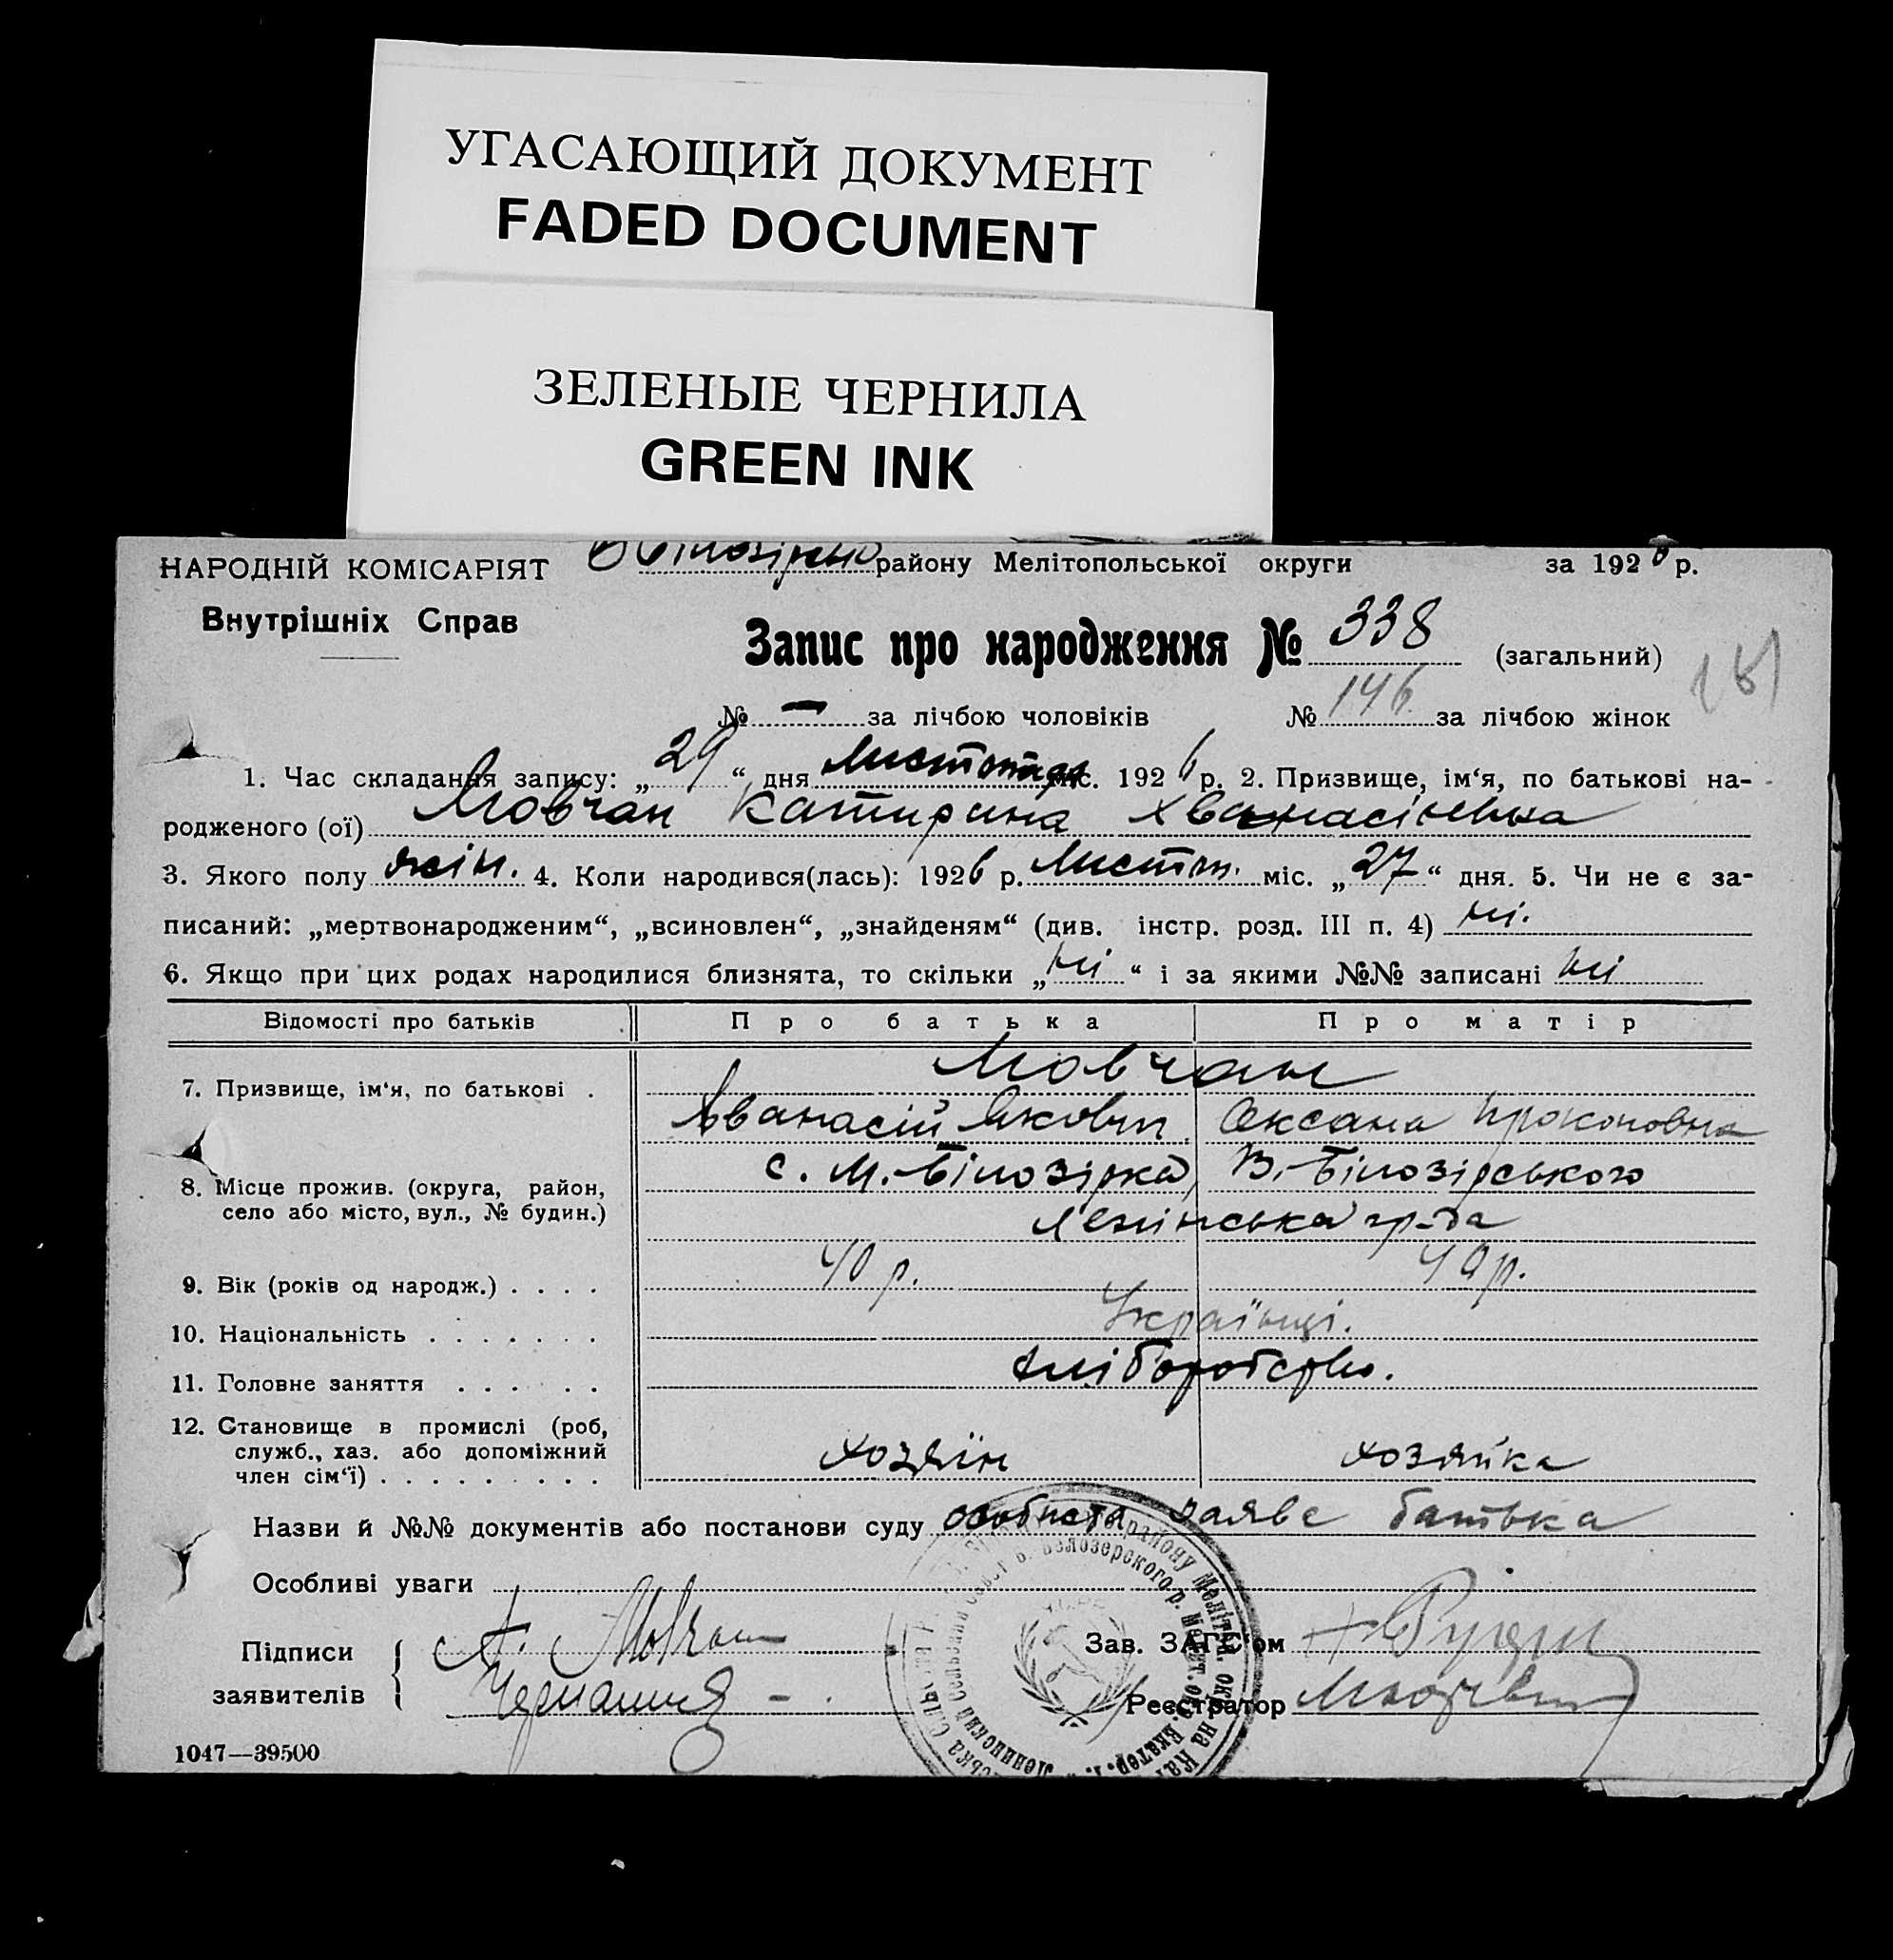 УГАСАЮЩИЙ ДОКУМЕНТ
FADED DOCUMENT
ЗЕЛЕНЫЕ ЧЕРНИЛА
GREEN INK
НАРОДНІЙ КОМІСАРІЯТ
району Мелітопольської округи за 1926 р.
Внутрішніх Справ
Запис про народження № 338 (загальний)
181
№ — за лічбою чоловіків № 146 за лічбою жінок
1. Час складання запису: „29“ дня Листопада міс. 1926 р. 2. Призвище, ім‘я, по батькові на-
родженого (ої) Мовчан Катирина Хванасіївна
3. Якого полу жін. 4. Коли народився(лась): 1926 р. Листоп. міс. „27“ дня. 5. Чи не є за-
писаний: „мертвонародженим“, „всиновлен“, „знайденям“ (див. інстр. розд. III п. 4) ні.
6. Якщо при цих родах народилися близнята, то скільки „ні“ і за якими №№ записані ні
Відомості про батьків Про батька Про матір
Мовчан
7. Призвище, ім‘я, по батькові . Хванасій Якович Оксана Прокоповна
8. Місце прожив. (округа, район, с. М.-Білозірка, В.-Білозірського
село або місто, вул., № будин.) Ленінська гр-да
9. Вік (років од народж.) . . . . 40 р. 40 р.
10. Національність . . . . . . . Українці.
11. Головне заняття . . . . . Хліборобство.
12. Становище в промислі (роб,
служб., хаз. або допоміжний хозяїн хозяйка
член сім‘ї) . . . . . . . . .
Назви й №№ документів або постанови суду особиста заява батька
Особливі уваги
Підписи А. Мовчан Зав. ЗАГС‘ом
заявителів Реєстратор
1047—39500